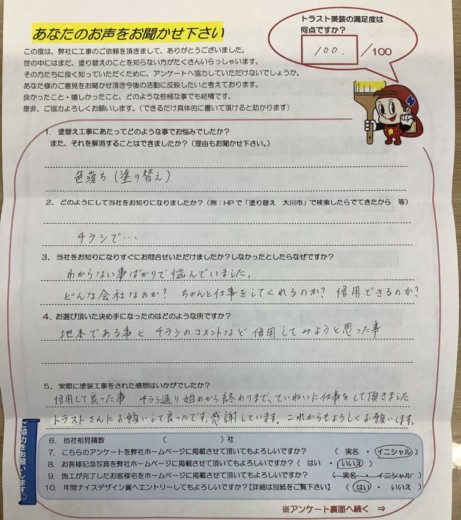 あなたのお声をお聞かせ下さい
トラスト美装の満足度は
何点ですか?
100. /100
この度は、弊社に工事のご依頼を頂きまして、ありがとうございました。
世の中にはまだ、塗り替えのことを知らない方がたくさんいらっしゃいます。
その方たちに良く知っていただくために、アンケートへ協力していただけないでしょうか。
あなた様のご意見をお聞かせ頂き今後の活動に反映したいと考えております。
良かったこと・嬉しかったこと、どのような些細な事でも結構です。
是非、ご協力よろしくお願いします。(できるだけ具体的に書いて頂けると助かります)
1. 塗替え工事にあたってどのような事でお悩みでしたか?
また、それを解消することはできましたか?(理由もお聞かせ下さい。)
色落ち(塗り替え)
2. どのようにして当社をお知りになりましたか?(例:HPで「塗り替え 大川市」で検索したらでてきたから 等)
チラシで…
3. 当社をお知りになりすぐにお問合せいただけましたか?しなかったとしたらなぜですか?
わからない事ばかりで悩んでいました。
どんな会社なのか? ちゃんと仕事をしてくれるのか? 信用できるのか?
4. お選び頂いた決め手になったのはどのような所ですか?
地本である事と チラシのコメントなど信用してみようと思った事
5. 実際に塗装工事をされた感想はいかがでしたか?
信用して良った事 チラシ通り始めから終わりまで、ていねいに仕事をして頂きました
トラストさんにお願いして良ったです。感謝しています。これからもよろしくお願いします。
6. 他社相見積数 ( )社
7. こちらのアンケートを弊社ホームページに掲載させて頂いてもよろしいですか? ( 実名 ・ イニシャル )
8. お客様記念写真を弊社ホームページに掲載させて頂いてもよろしいですか? ( はい ・ いいえ )
9. 施工が完了したお客様宅をホームページに掲載させて頂いてもよろしいですか? ( 実名 ・ イニシャル )
10. 年間ナイスデザイン賞へエントリーしてもよろしいですか?【詳細は別紙をご覧下さい】 ( はい ・ いいえ )
※アンケート裏面へ続く ⇒